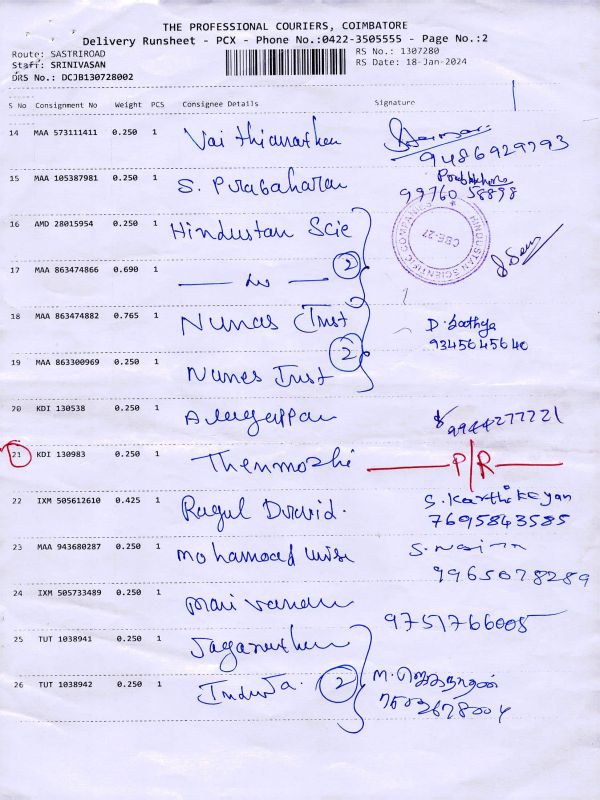 THE PROFESSIONAL COURIERS, COIMBATORE
Delivery Runsheet - PCX - Phone No.:0422-3505555 - Page No.:2
Route: SASTRIROAD
RS No.: 1307280
Staff: SRINIVASAN
RS Date: 18-Jan-2024
DRS No.: DCJB130728002
S No Consignment No Weight PCS Consignee Details Signature
14 MAA 573111411 0.250 1 Vaithianathan
9486929793
15 MAA 105387981 0.250 1 S. Prabaharan
99760 58898
16 AMD 28015954 0.250 1 Hindustan Scie
HINDUSTAN SCIENTIFIC COMPANY
CBE-27
17 MAA 863474866 0.690 1 2
18 MAA 863474882 0.765 1 Nunas Trust D. Sathya
9345645640
2
19 MAA 863300969 0.250 1 Nunes Trust
20 KDI 130538 0.250 1 Alagappan 9944277221
21 KDI 130983 0.250 1 Thenmozhi P/R
22 IXM 505612610 0.425 1 Ragul Dravid. S. Karthikeyan
7695843585
23 MAA 943680287 0.250 1 Mohamoad
9965078289
24 IXM 505733489 0.250 1
9751766005
25 TUT 1038941 0.250 1 Jaganathan
26 TUT 1038942 0.250 1 2 M. ஜெகநாதன்
7502678004